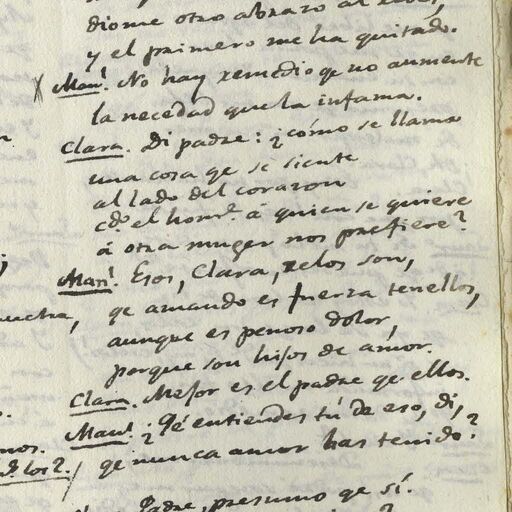 diome otro abrazo al
y el primero me ha quitado.
Man.l No hay remedio qe no aumente
la necedad que la infama.
Clara. Di padre: ¿cómo se llama
una cosa qe se siente
al lado del corazon
cdo. el homr.e á quien se quiere
á otra muger nos prefiere?
Man.l Esos, Clara, zelos son,
qe amando es fuerza tenellos,
aunque es penoso dolor,
porque son hijos de amor.
Clara. Mejor es el padre qe ellos.
Man.l ¿Qé entiendes tú de eso, di,
qe nunca amor has tenido?
Padre, presumo qe sí.